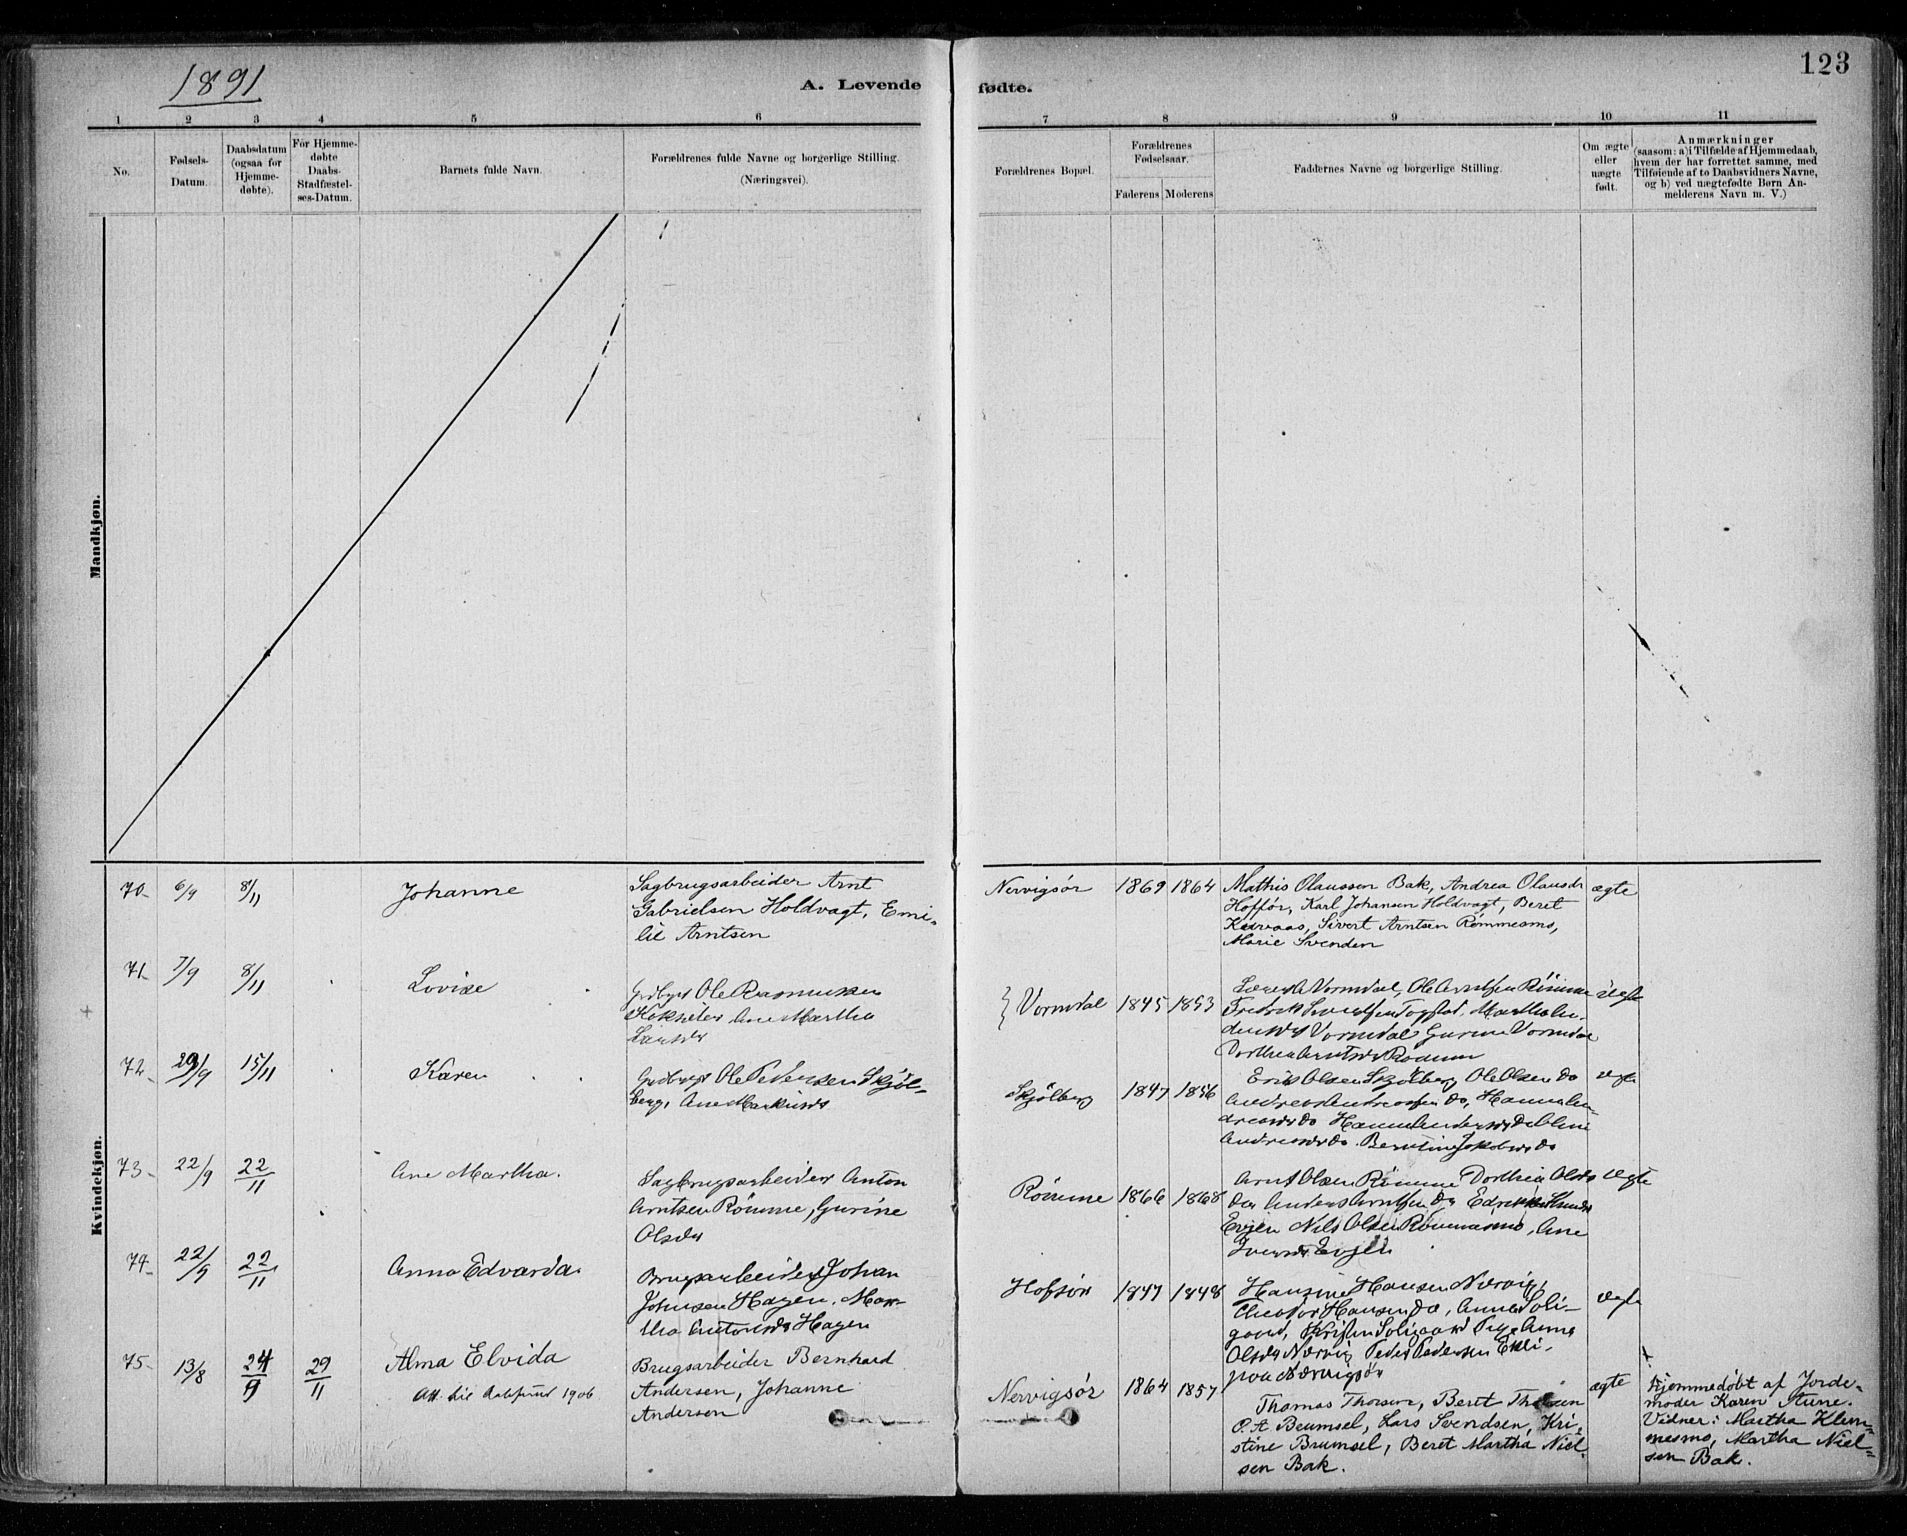 1891
A. Levende fødte.
123
1 2 3 4 5 6 7 8 9 10 11
No.
Fødsels-
Datum.
Daabsdatum
(ogsaa for
Hjemme-
døbte).
For Hjemme-
døbte
Daabs-
Stadfæstel-
ses-Datum.
Barnets fulde Navn.
Forældrenes fulde Navne og borgerlige Stilling.
(Næringsvei).
Forældrenes Bopæl.
Forældrenes
Fødselsaar.
Faderens Moderens
Faddernes Navne og borgerlige Stilling.
Om ægte
eller
uægte
født.
Anmærkninger
(saasom: a) i Tilfælde af Hjemmedaab,
hvem der har forrettet samme, med
Tilføiende af to Daabsvidners Navne,
og b) ved uægtefødte Børn An-
melderens Navn m. V.)
Mandkjøn.
Kvindekjøn.
70 6/9 8/11
Johanne
Sagbrugsarbeider Arnt
Gabrielsen Holdvagt, Emi-
lie Arntsen
Nervigsør 1869 1864
Mathis Olaussen Bak, Andrea Olausdr
Hoffør, Karl Johansen Holdvagt, Beret
Sivert Arntsen Rømmesmo,
Marie Svendsen
ægte
71 7/9 8/11
Lovise
Gdbgr Ole Rasmussen
Ane Martha
Larsdr
Vormdal 1845 1853
Lars A Vormdal, Ole Arntsen Rømme
Fredrik Togstad, Martha
Vormdal Gurine Vormdal
Dorthea Arntsdr Rømme
ægte
72 29/9 15/11
Karen
Gdbrgr Ole Pedersen Skjøl-
berg, Ane Markusdr
Skjølberg 1847 1856
Erik Olsen Skjølberg Ole Olsen do
Andreas Andreassen do, Hanna An-
dreasdr do Hanna Andersdr do Oline
Andreasdr do. Berntine Jakobsdr do
ægte
73 22/9 22/11
Ane Martha.
Sagbrugsarbeider Anton
Arntsen Rømme, Gurine
Olsdr
Rømme 1866 1868
Arnt Olsen Rømme Dorthea Olsdr
do Anders Arntsen do
Evjen Nils Olsen Rømmesmo, Ane
Iversdr Evjen
ægte
74 22/9 22/11
Anna Edvarda
Brugsarbeider Johan
Johnsen Hagen. Mar-
tha Antonsdr Hagen
Hofsør 1847 1848
Hansine Hansen Nervig,
Theodor Hansen do, Anna Soli-
gaard, Kristen Soligaard Anna
Olsdr Nervig Peder Pedersen
Nervigsør
ægte
75 13/8 24/9 29/11
Alma Elvida
Att. til 1906
Brugsarbeider Bernhard
Andersen, Johanne
Andersen
Nervigsør 1864 1857
Thomas Thorsen, Beret Thorsen
O. A. Brumsel, Lars Svendsen, Kri-
stine Brumsel, Beret Martha Niel-
sen Bak.
ægte
Hjemmedøbt af Jorde-
moder Karen Aune.
Vidner: Martha Klem-
mesmo, Martha Niel-
sen Bak.